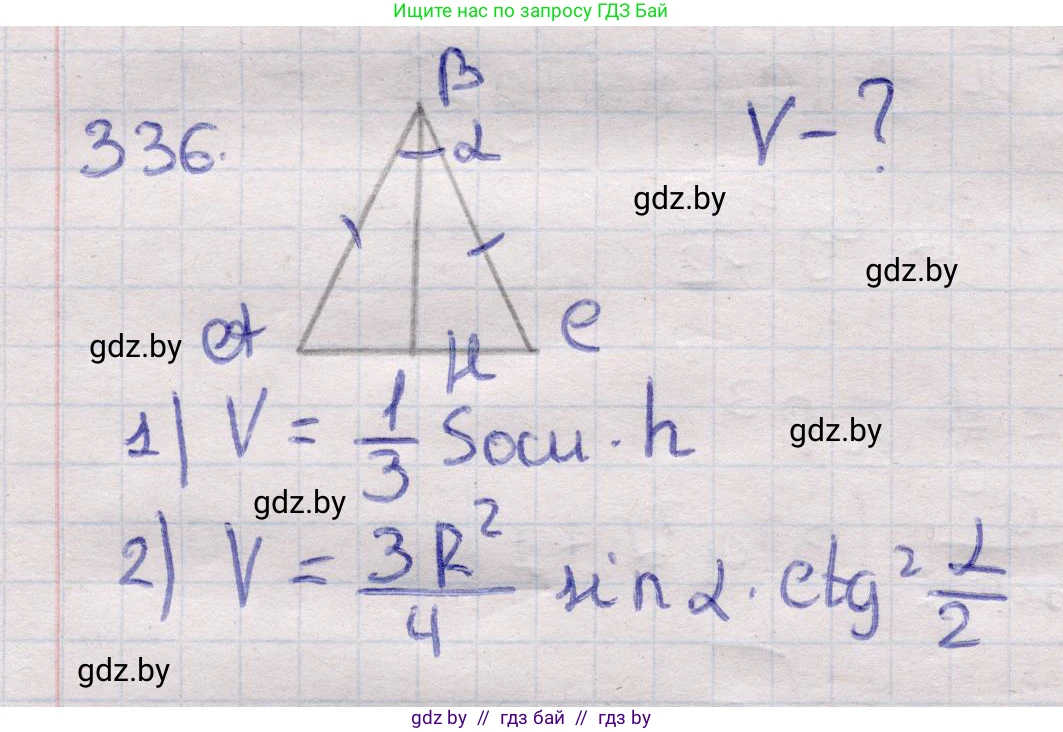 Ищите нас по запросу ГДЗ Бай
336.
B
α
V - ?
gdz.by
gdz.by
gdz.by
A
H
C
1) V = 1/3 Sосн · h
gdz.by
gdz.by
2) V = 3R²/4 sin α · ctg² α/2
gdz.by
gdz by // гдз бай // гдз by